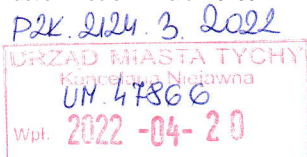 PZK. 2124. 3. 2022
URZĄD MIASTA TYCHY
Kancelaria Niejawna
UM. 47866
Wpł. 2022 -04- 20